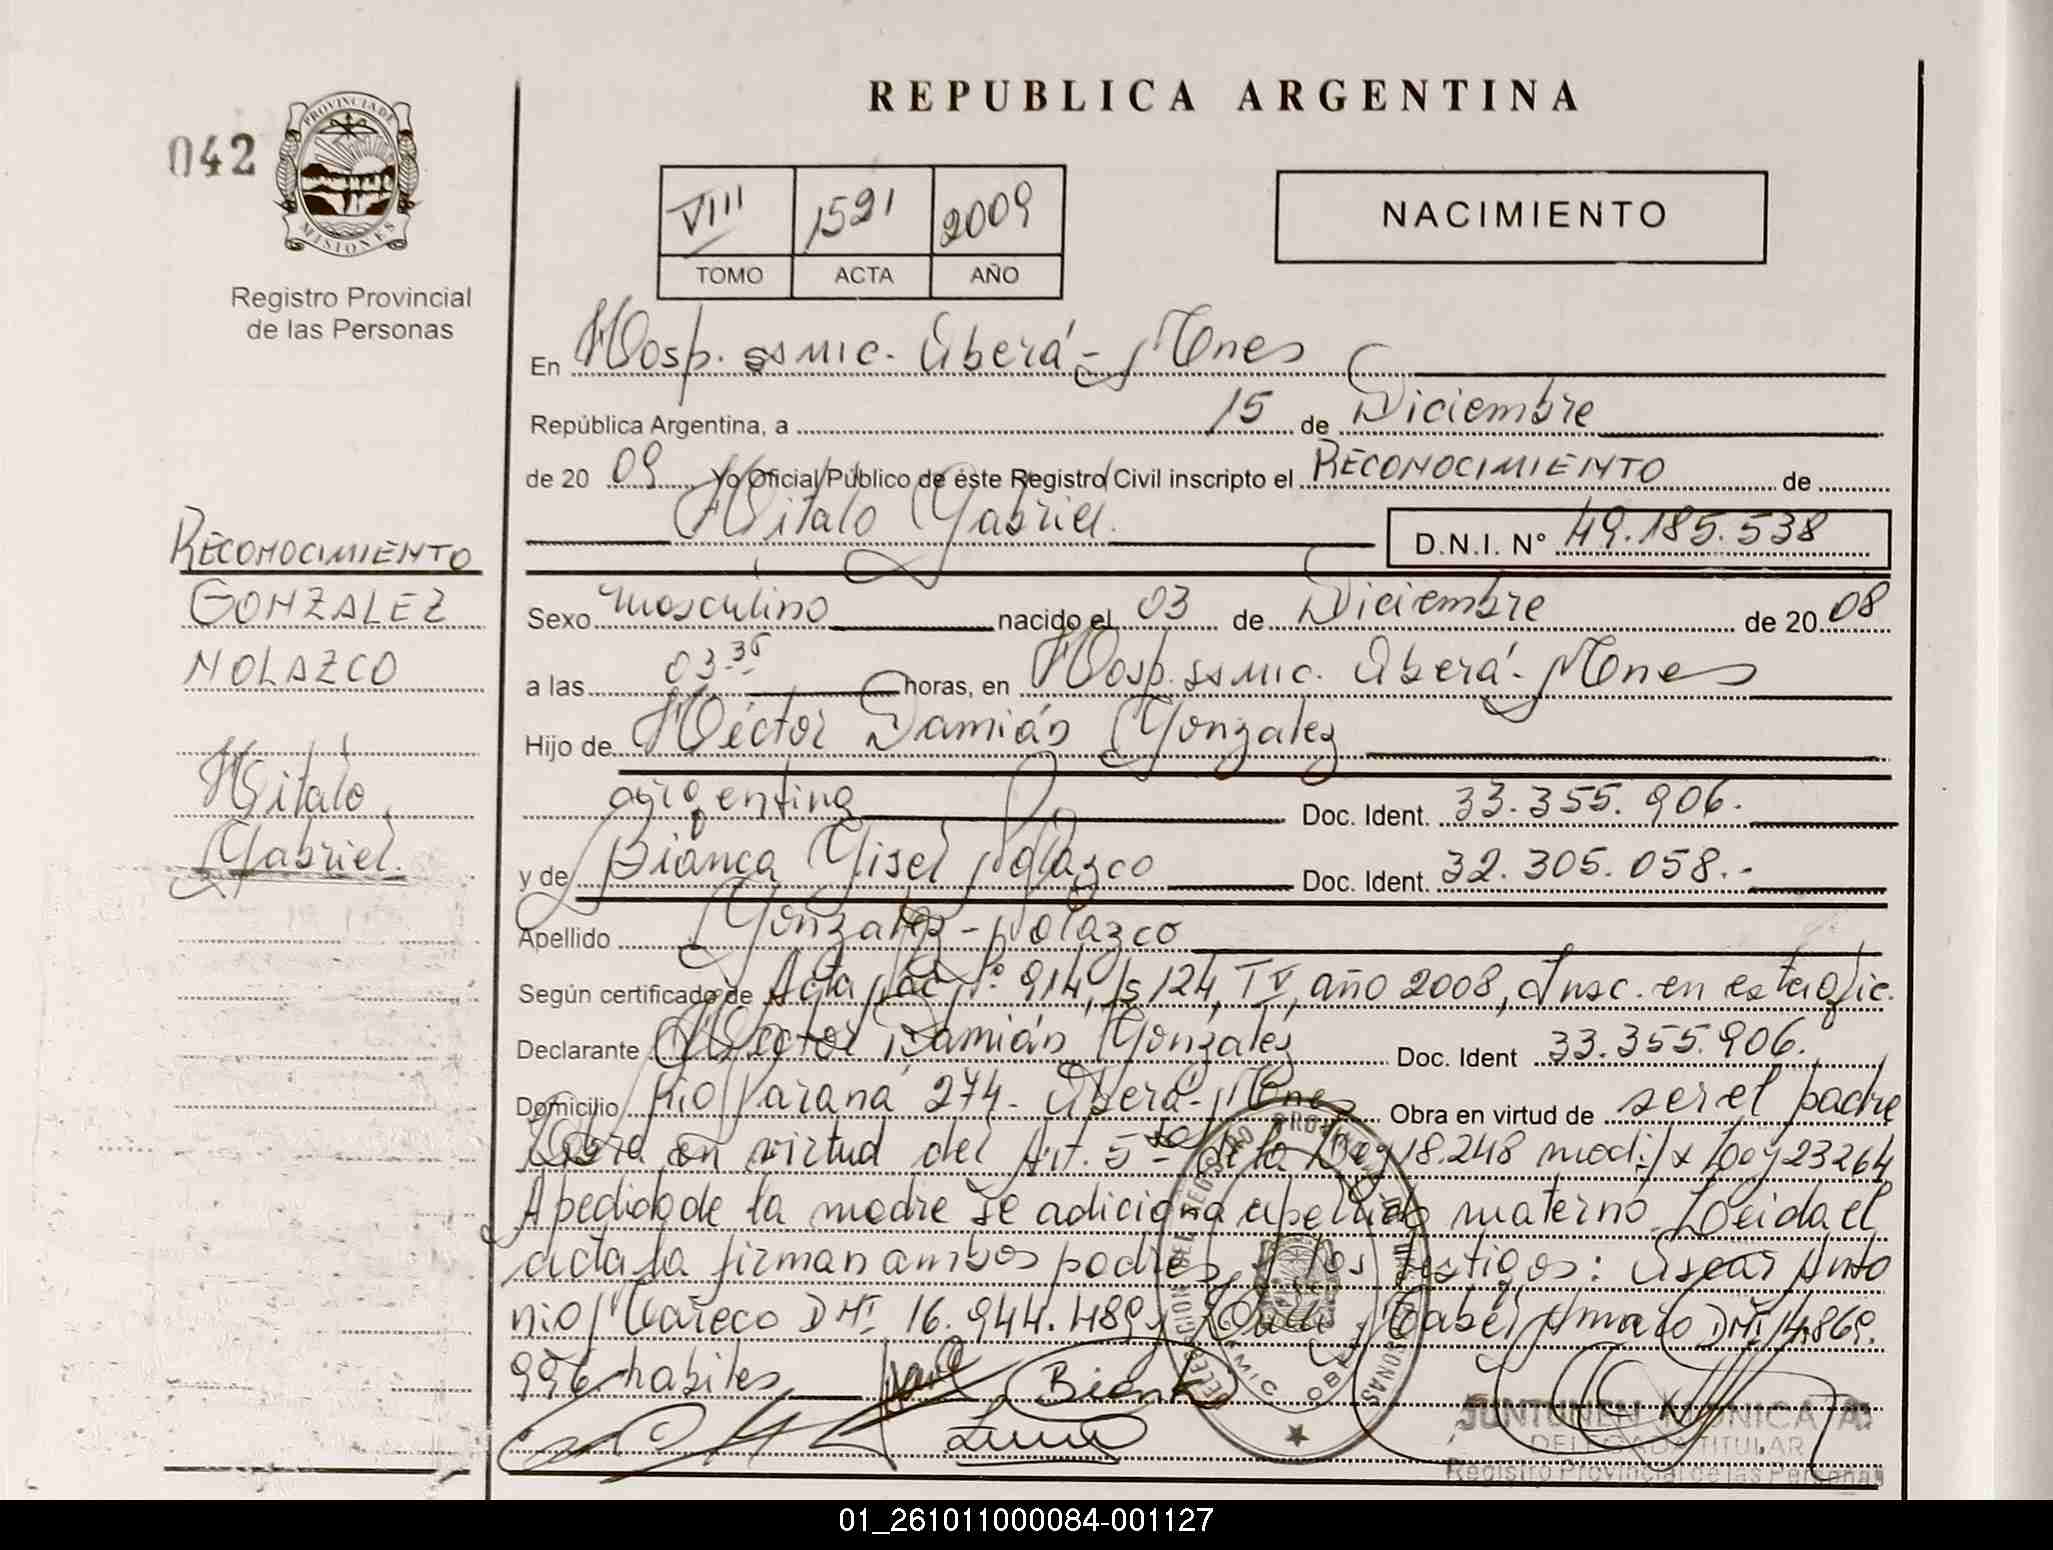 REPUBLICA ARGENTINA
042
PROVINCIA DE
MISIONES
Registro Provincial
de las Personas
VIII 1521 2009
TOMO ACTA AÑO
NACIMIENTO
En Hosp. SSMIC. Oberá - Mnes
República Argentina, a 15 de Diciembre
de 20 09 Yo Oficial Público de éste Registro Civil inscripto el RECONOCIMIENTO de
Hitalo Gabriel.
D.N.I. N° 49.185.538
RECONOCIMIENTO
GONZALEZ
NOLAZCO
Hitalo
Gabriel.
Sexo masculino nacido el 03 de Diciembre de 20 08
a las 03. horas, en Hosp. SSMIC. Oberá - Mnes
Hijo de Héctor Damián Gonzalez
argentina Doc. Ident. 33.355.906.
y de Bianca Gisel Nolazco Doc. Ident. 32.305.058.-
Apellido Gonzalez - Nolazco
Según certificado de Acta Nac. N° 914, Fs 124, T V, año 2008, Insc. en esta Ofic.
Declarante Héctor Damián Gonzalez Doc. Ident 33.355.906.
Domicilio Río Paraná 274 - Oberá - Mnes Obra en virtud de ser el padre
Obra en virtud del Art. 5 de la Ley 18.248 modif. x Ley 23264
A pedido de la madre se adiciona apellido materno. Leida el
acta la firman ambos padres y los testigos: Oscar Anto
nio DNI. 16.944.489 y Isabel Amaro DNI. 14.869.
996 habiles
JUNTUNEN MONICA A.
DELEGADA TITULAR
Registro Provincial de las Personas
01_261011000084-001127